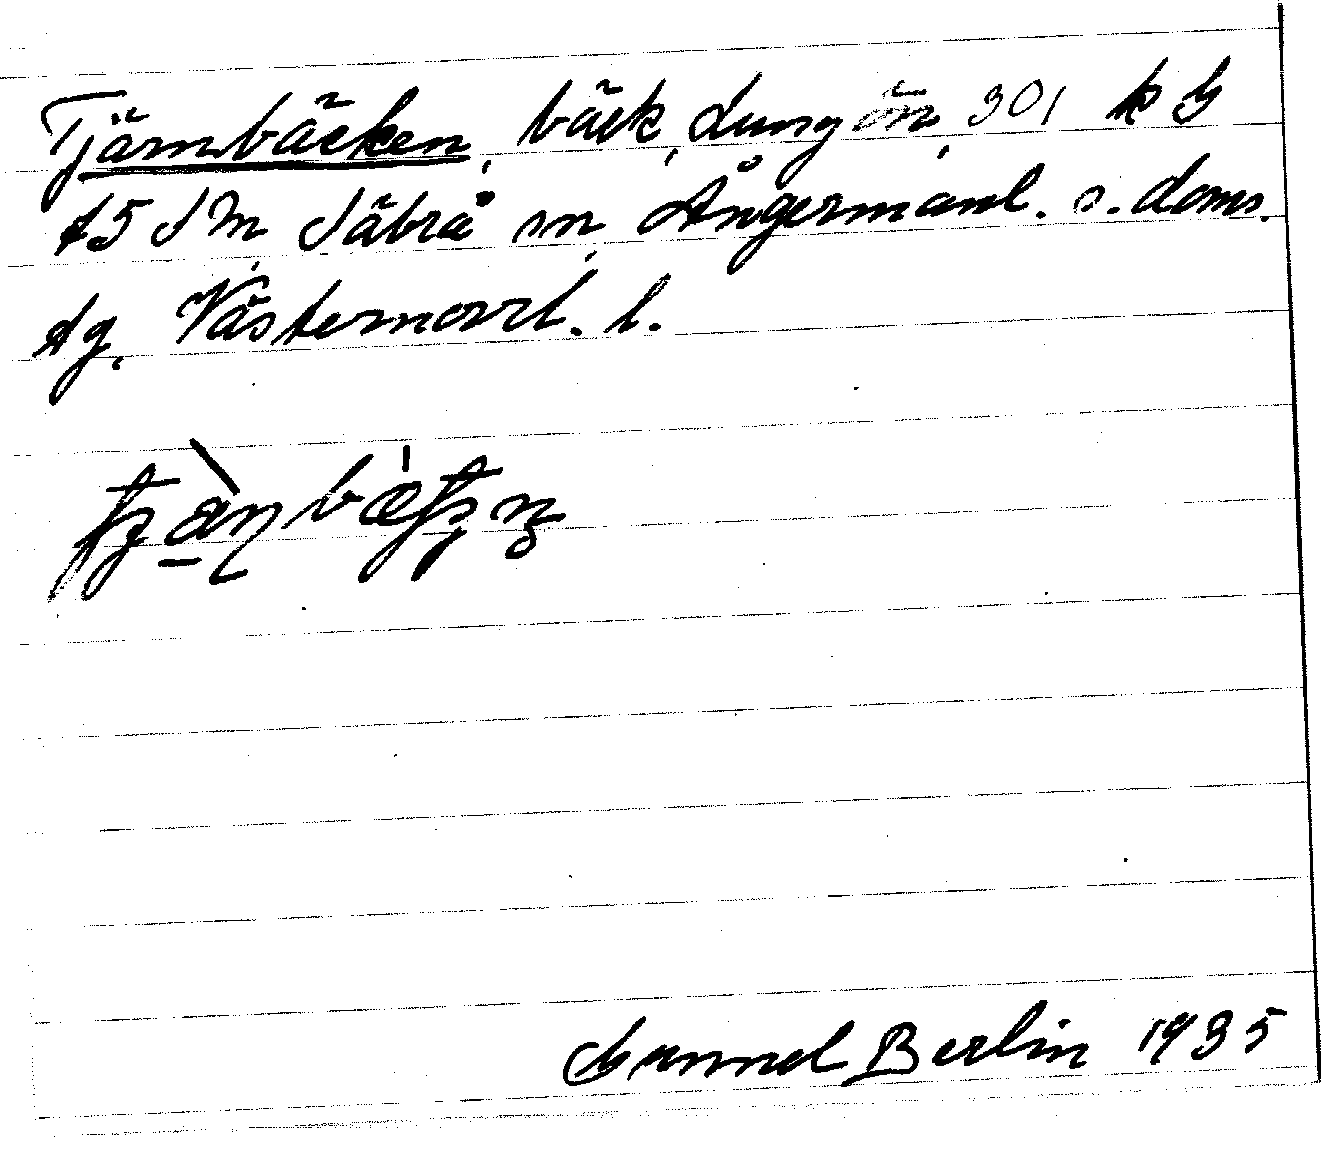 Tjärnbäcken, bäck, Lungön, 301 k G
A5 S M, Säbrå sn, Ångermanl. s. doms.
Ag, Västernorrl. l.
Gunnel Berlin 1935